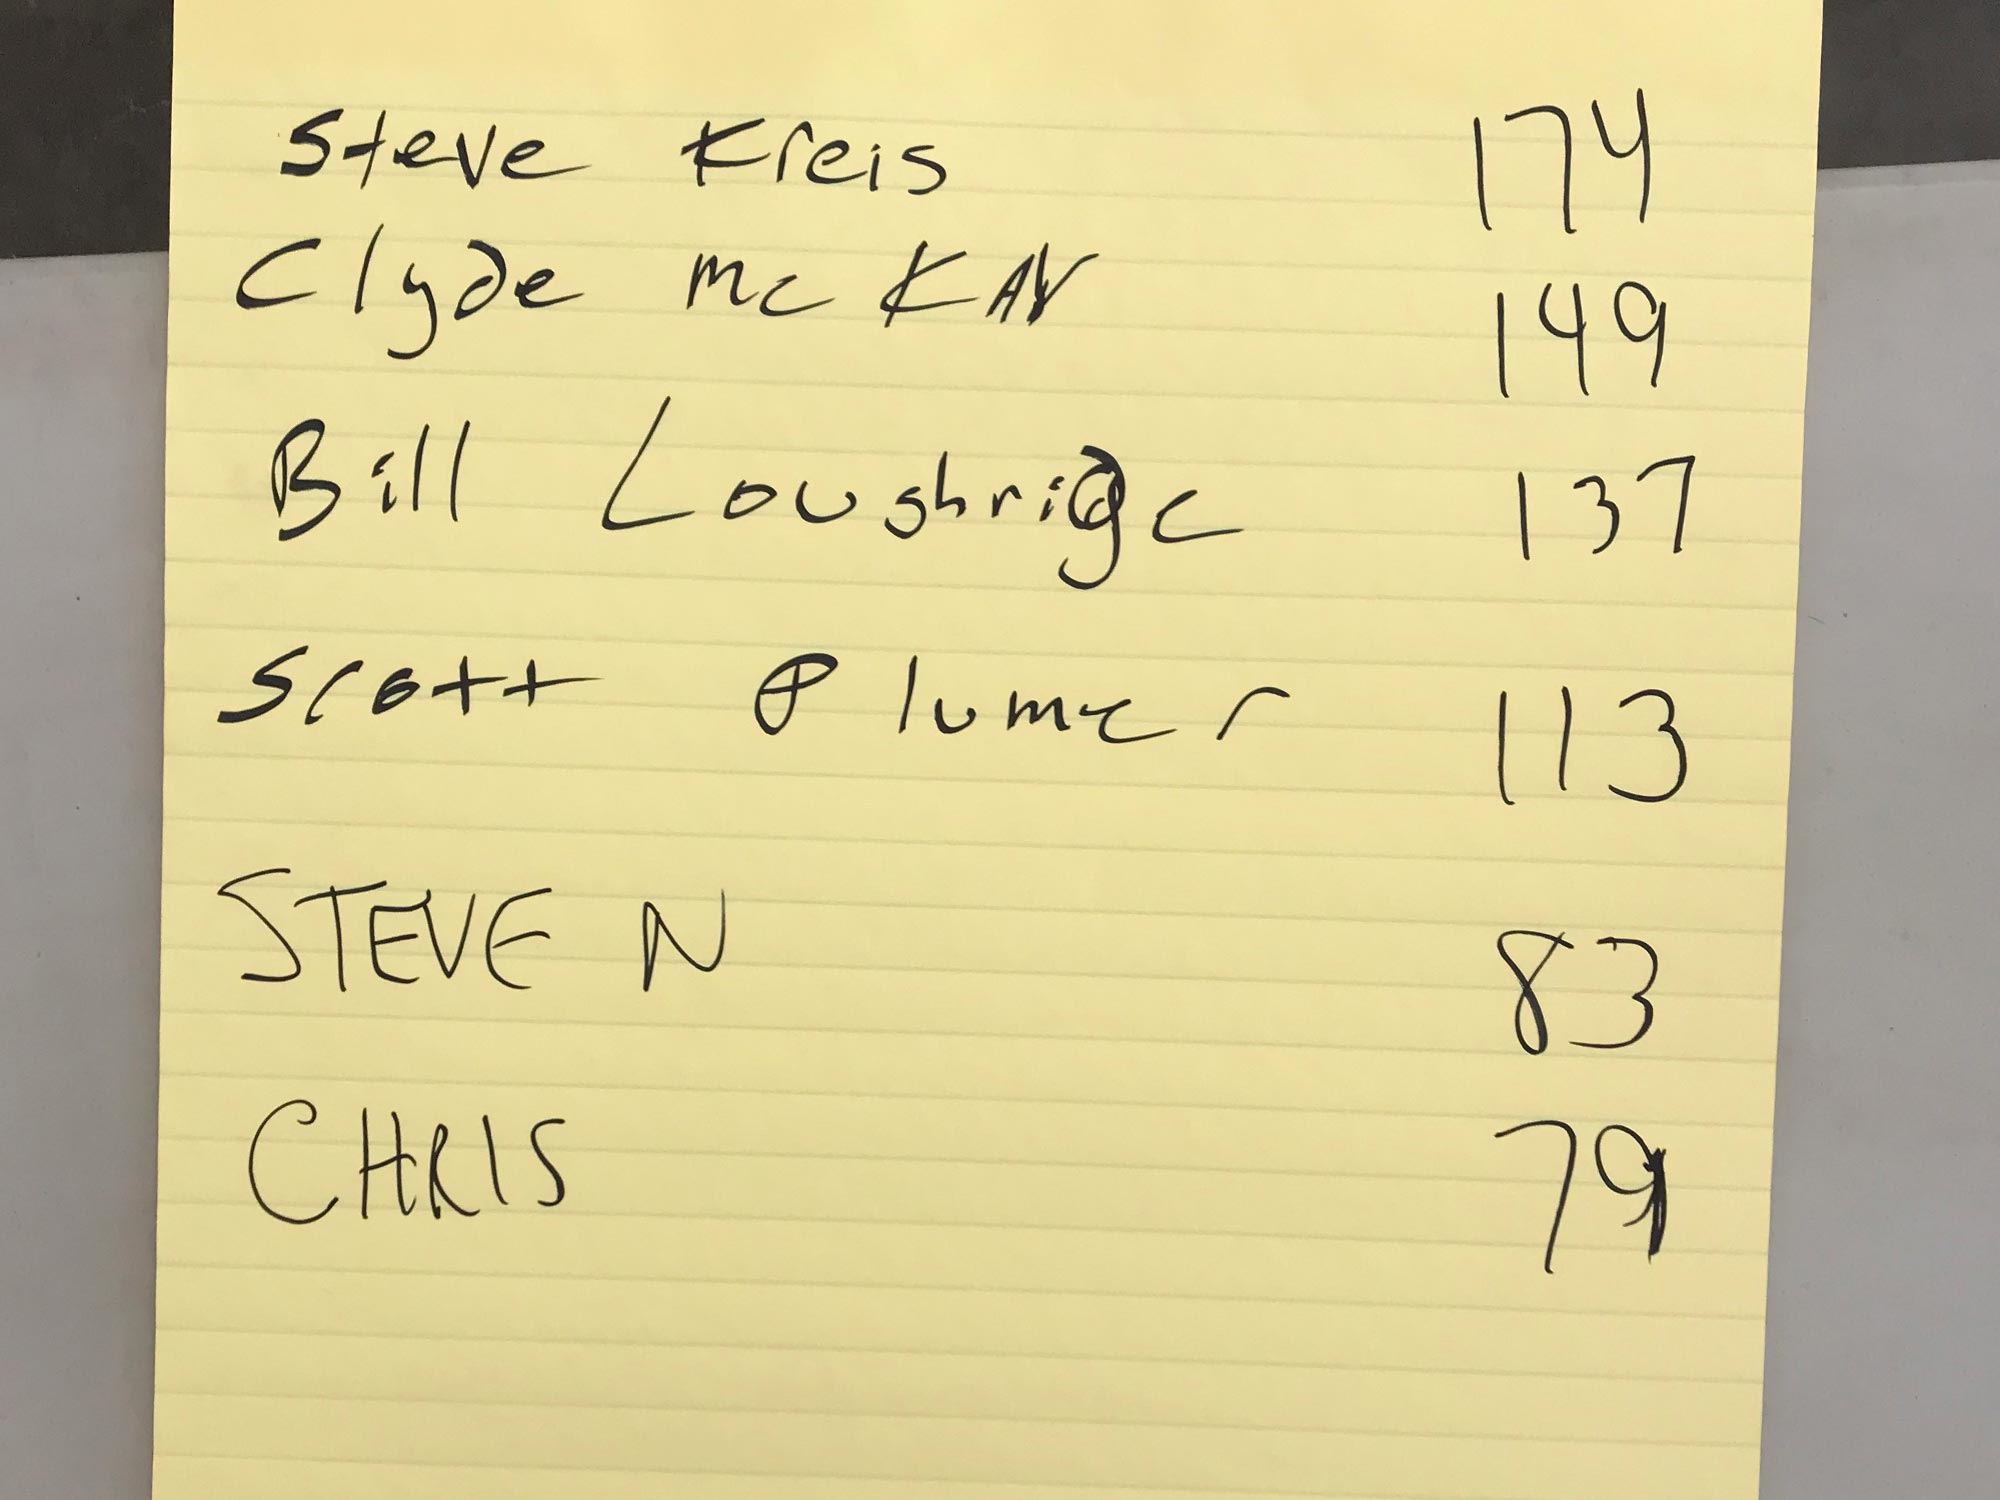 Steve Kreis 174
Clyde Mc KAY 149
Bill Loughridge 137
Scott Plumer 113
STEVE N 83
CHRIS 79